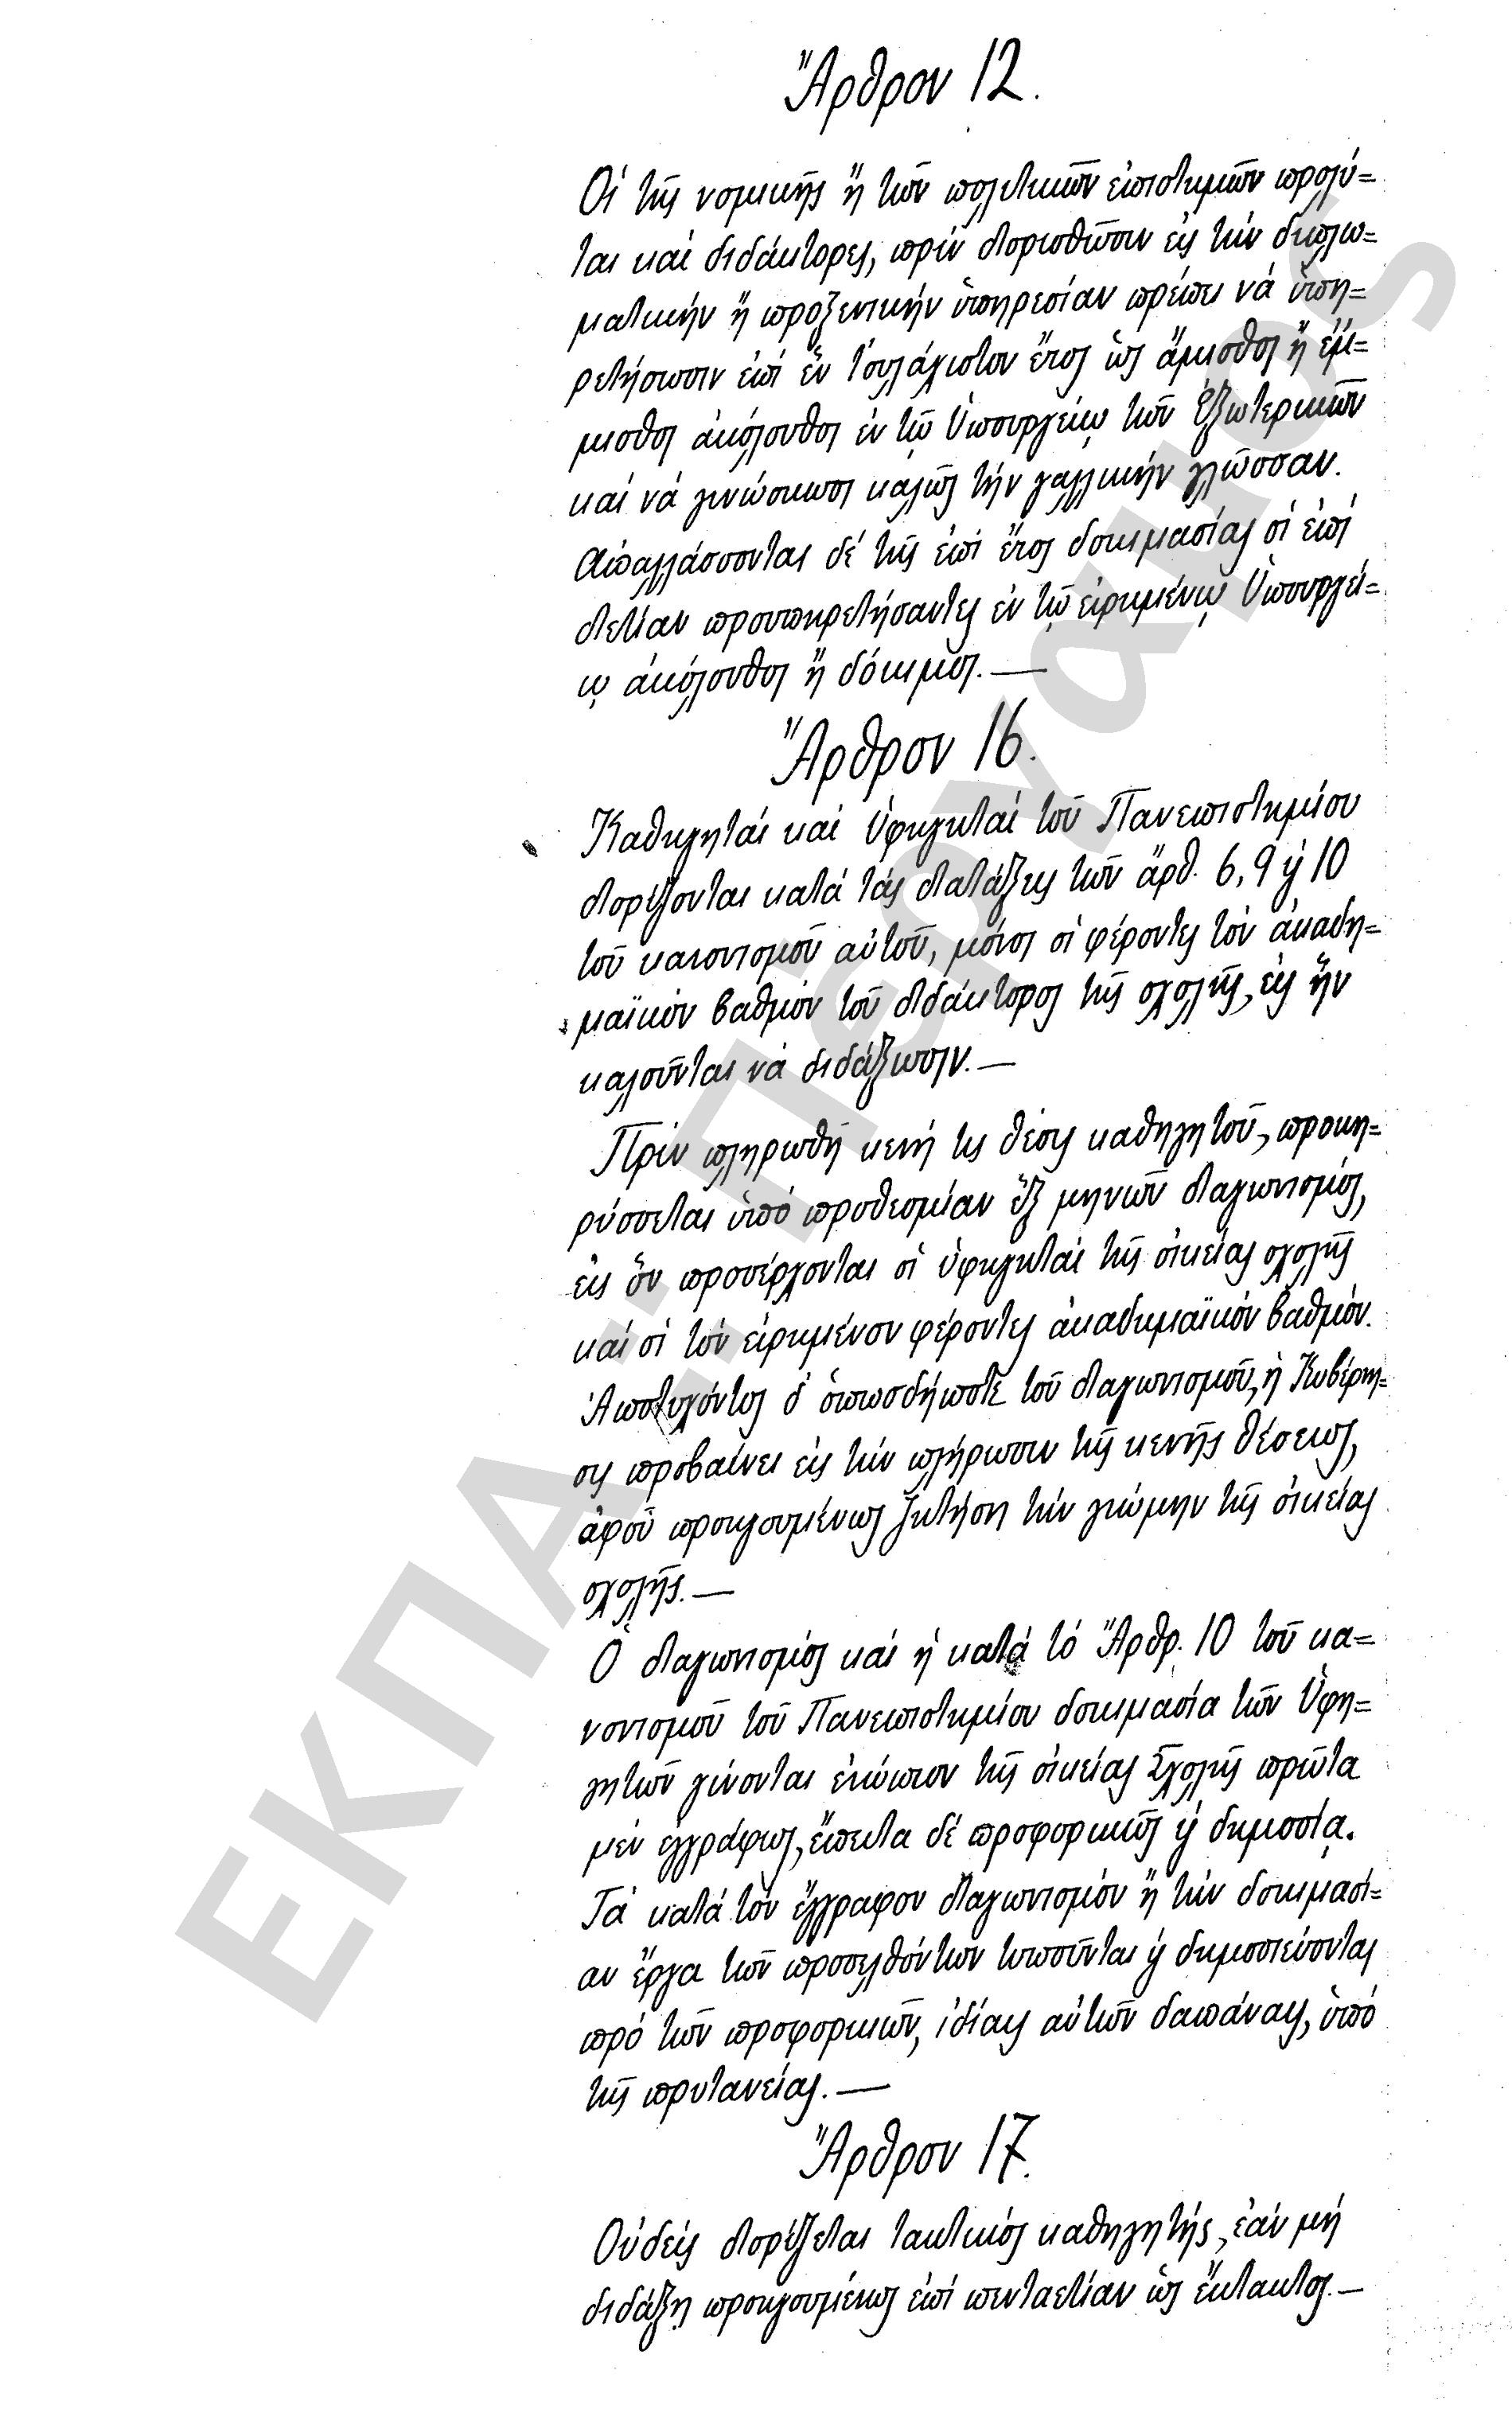 Ἄρθρον 12.
Οἱ τῆς νομικῆς ἢ τῶν πολιτικῶν ἐπιστημῶν προλύ=
ται καὶ διδάκτορες, πρὶν διορισθῶσιν εἰς τὴν διπλω=
ματικὴν ἢ προξενικὴν ὑπηρεσίαν πρέπει νὰ ὑπη=
ρετήσωσιν ἐπὶ ἓν τοὐλάχιστον ἔτος ὡς ἄμισθοι ἢ ἔμ=
μισθοι ἀκόλουθοι ἐν τῷ Ὑπουργείῳ τῶν Ἐξωτερικῶν
καὶ νὰ γινώσκωσι καλῶς τὴν γαλλικὴν γλῶσσαν.
Ἀπαλλάσσονται δὲ τῆς ἐπὶ ἔτος δοκιμασίας οἱ ἐπὶ
διετίαν προυπηρετήσαντες ἐν τῷ εἰρημένῳ Ὑπουργεί=
ῳ ἀκόλουθοι ἢ δόκιμοι.—
Ἄρθρον 16.
Καθηγηταὶ καὶ Ὑφηγηταὶ τοῦ Πανεπιστημίου
διορίζονται κατὰ τὰς διατάξεις τῶν ἄρθ. 6, 9 ϗ 10
τοῦ κανονισμοῦ αὐτοῦ, μόνοι οἱ φέροντες τὸν ἀκαδη=
μαϊκὸν βαθμὸν τοῦ διδάκτορος τῆς σχολῆς, εἰς ἣν
καλοῦνται νὰ διδάξωσιν.—
Πρὶν πληρωθῇ κενή τις θέσις καθηγητοῦ, προκη=
ρύσσεται ὑπὸ προθεσμίαν ἓξ μηνῶν διαγωνισμός,
εἰς ὃν προσέρχονται οἱ ὑφηγηταὶ τῆς οἰκείας σχολῆς
καὶ οἱ τὸν εἰρημένον φέροντες ἀκαδημαϊκὸν βαθμόν.
Ἀποτυχόντος δ' ὁπωσδήποτε τοῦ διαγωνισμοῦ, ἡ Κυβέρνη=
σις προβαίνει εἰς τὴν πλήρωσιν τῆς κενῆς θέσεως,
ἀφοῦ προηγουμένως ζητήσῃ τὴν γνώμην τῆς οἰκείας
σχολῆς.—
Ὁ διαγωνισμὸς καὶ ἡ κατὰ τὸ Ἄρθρ. 10 τοῦ κα=
νονισμοῦ τοῦ Πανεπιστημίου δοκιμασία τῶν Ὑφη=
γητῶν γίνονται ἐνώπιον τῆς οἰκείας Σχολῆς πρῶτα
μὲν ἐγγράφως, ἔπειτα δὲ προφορικῶς ϗ δημοσίᾳ.
Τὰ κατὰ τὸν ἔγγραφον διαγωνισμὸν ἢ τὴν δοκιμασί=
αν ἔργα τῶν προσελθόντων τυποῦνται ϗ δημοσιεύονται
πρὸ τῶν προφορικῶν, ἰδίαις αὐτῶν δαπάναις, ὑπὸ
τῆς πρυτανείας.—
Ἄρθρον 17.
Οὐδεὶς διορίζεται τακτικὸς καθηγητής, ἐὰν μὴ
διδάξῃ προηγουμένως ἐπὶ πενταετίαν ὡς ἔκτακτος.—